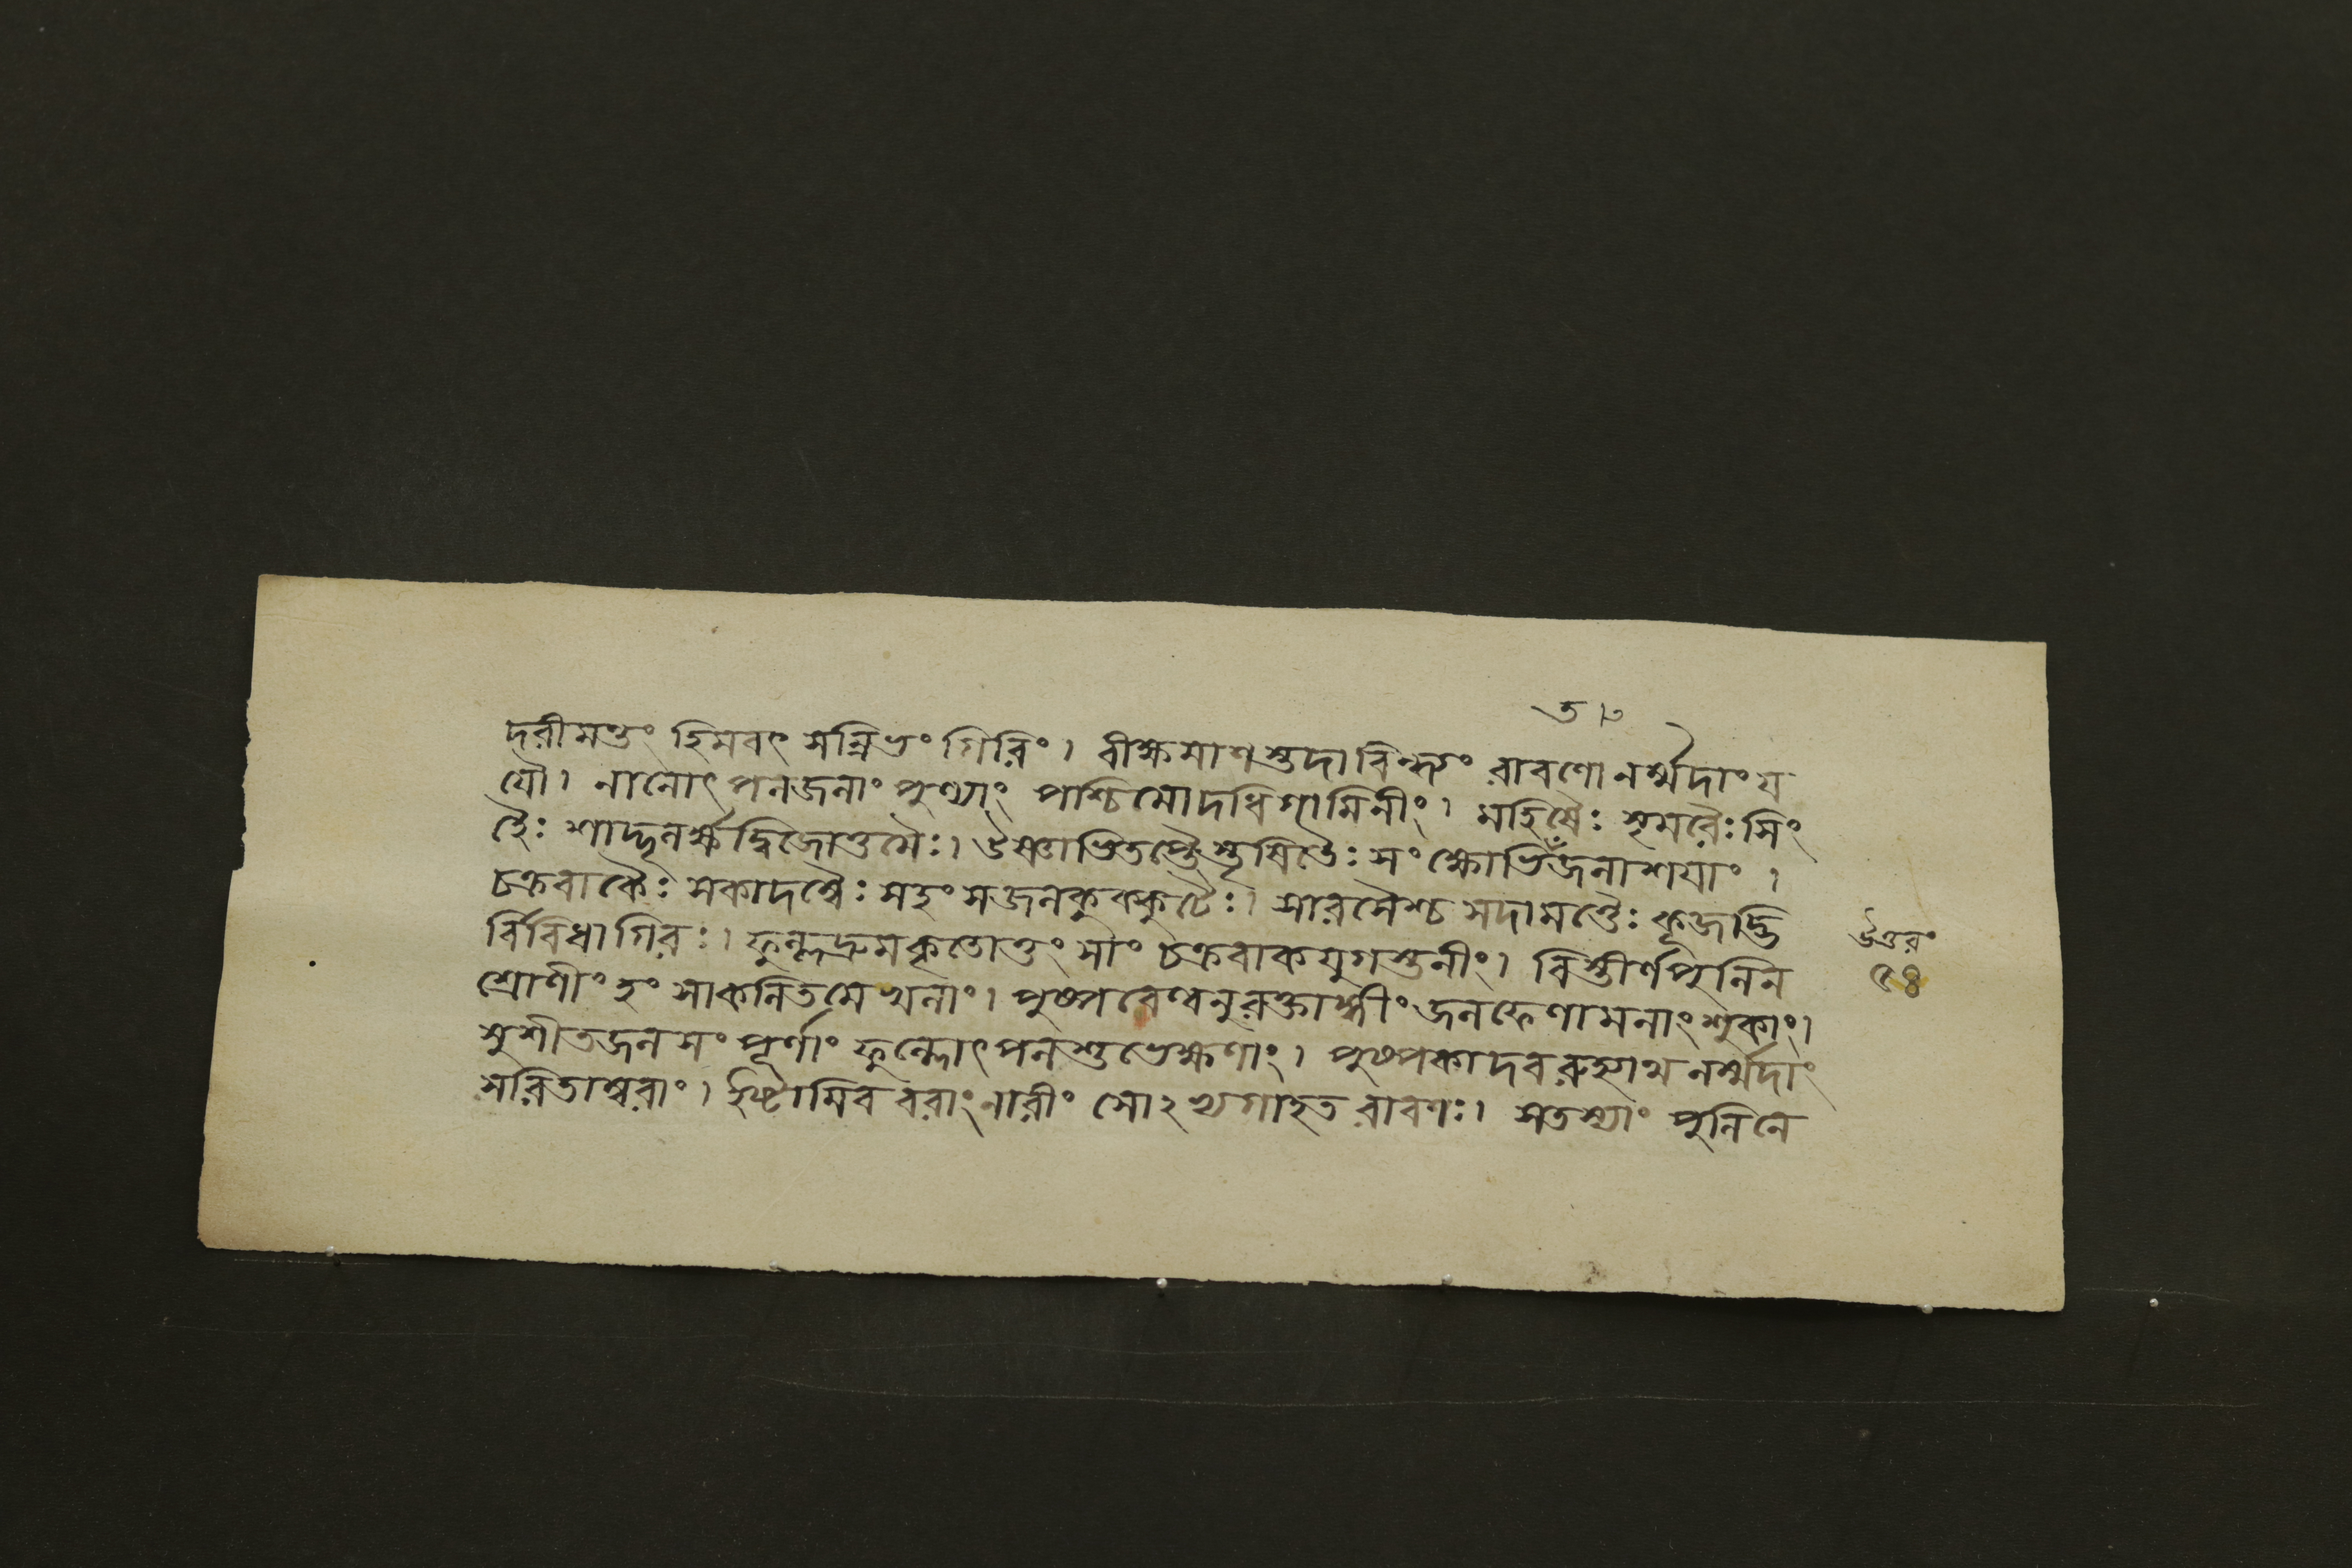 দরীমন্তং হিমবৎ সন্নিভং গিরিং। বীক্ষমাণস্তদাবিন্ধ্যং রাবণোনর্ম্মদাং য
যৌ। নানোৎপলজলাং পুণ্যাং পশ্চিমোদধিগামিনীং। মহিষৈঃ সৃমরৈঃ সিং
হৈঃ শার্দ্দূলর্ক্ষদ্বিজোত্তমৈঃ। উষ্ণাভিতপ্তৈস্তৃষিতৈঃ সংক্ষোভিতজলাশয়াং।
চক্রবাকৈঃ সকাদম্বৈঃ সহংসজলকুক্কুটৈঃ। সারসৈশ্চ সদামত্তৈঃ কূজদ্ভি
র্বিবিধাগিরঃ। ফুল্লদ্রুমকৃতোত্তংসাং চক্রবাকযুগস্তনীং। বিস্তীর্ণপুলিন
শ্রোণীং হংসাকলিতমেখলাং। পুষ্পরেণ্বনুরক্তাঙ্গীং জলফেণামলাংশুকাং।
সুশীতজলসংপূর্ণাং ফুল্লোৎপলশুভেক্ষণাং। পুষ্পকাদবরুহ্যাথ নর্ম্মদাং
সরিতাম্বরাং। ইষ্টামিব বরাংনারীং সোঽথগাহত রাবণঃ। সতস্যাং পুলিনে
উত্তরং
৫৪